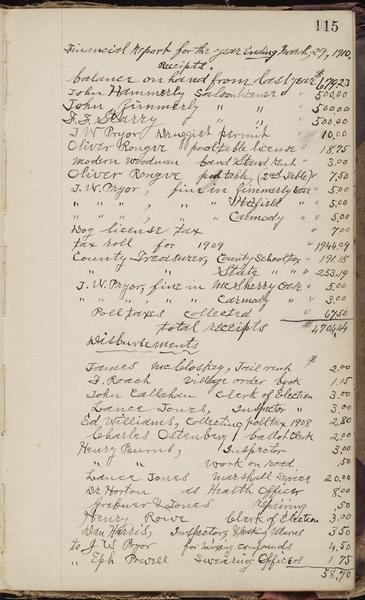 115
Financial Report for the year Ending March, 29, 1910,
Receipts
balance on hand from last year $679.23
John Hammerly Saloon license " 500.00
John Zimmerly " " " 500.00
F. F. Starry " " " 500.00
J. W. Pryor Druggist permit " 10.00
Oliver Rongve pool table license " 18.75
Modern Woodman band stand rent " 3.00
Oliver Rongve pool table, (2nd table) " 7.50
J. W. Pryor, fine in Zimmerly case " 5.00
" " " , " " " " 5.00
" " " , " " Carmody " " 5.00
Dog license tax " 7.00
tax roll for 1909 " 1944.09
County Treasurer, County School tax " 191.18
" " State " " 253.19
J. W. Pryor, fine in McSherry case " 5.00
" " " , " " Carmody " " 3.00
Poll taxes collected " 67.50
total receipts $4704.44
Disbursements
James McCloskey, Jail rent $ 2.00
F. Roach Village order book 1.15
John Callahan Clerk of Election 3.00
Lance Jones, Inspector " 3.00
Ed Williams, Collecting poll tax 1908 2.80
Charles Oltenburg, ballot Clerk 2.00
Henry Burns, Inspector 3.00
" " Work on road .50
Lance Jones Marshall Service 20.00
Dr Horton as Health Officer 8.00
& Jones Repairing .50
Henry Rowe Clerk of Election 3.00
Dan Harris, Inspector, & making returns 3.50
to J. W. Pryor for mixing compounds 4.50
" Eph Powell Swearing Officers 75
58.70